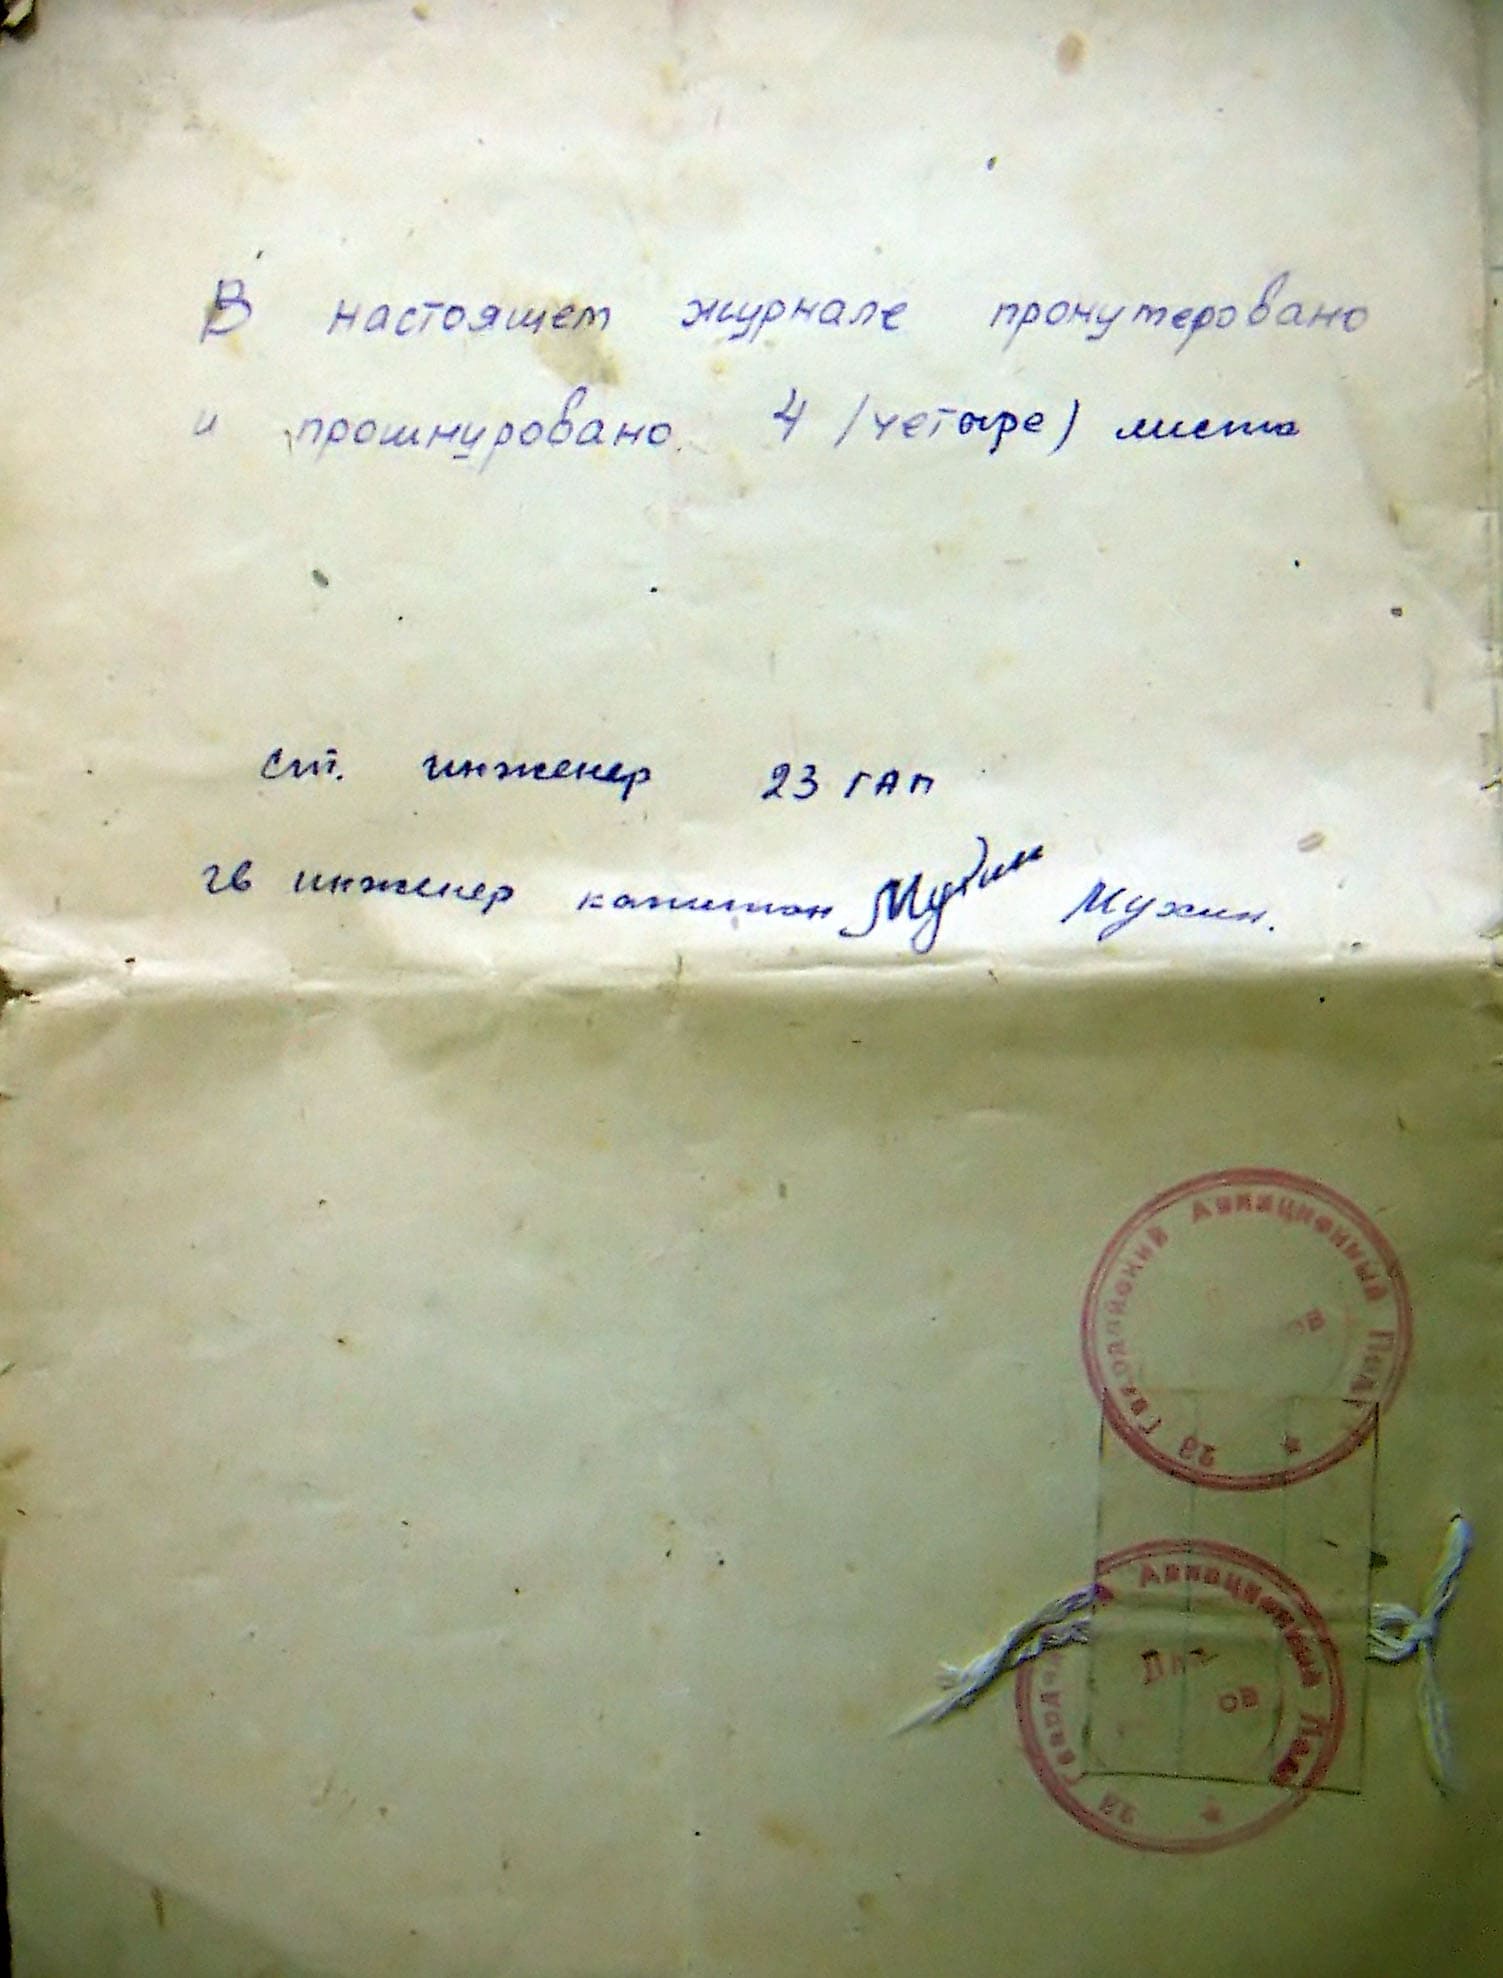 В настоящем журнале пронумеровано
и прошнуровано 4 /четыре) листа
ст. инженер 23 ГАП
гв инженер капитан Мухин Мухин.
Гвардейский Авиационный Полк
ОВ
Авиационный
ОВ